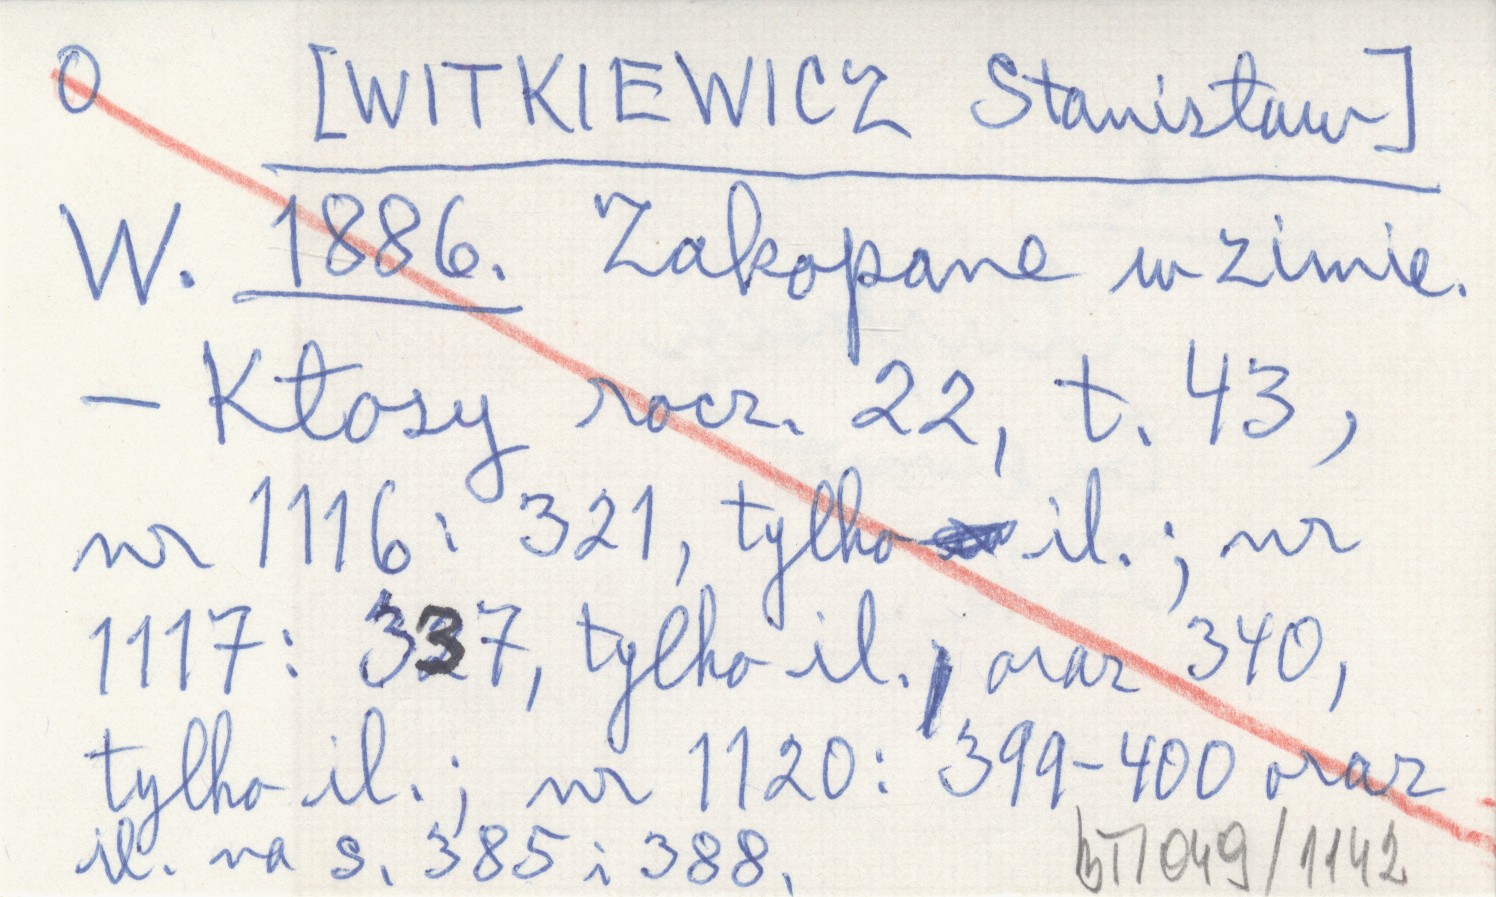 O [WITKIEWICZ Stanisław]
W. 1886. Zakopane w zimie.
– Kłosy rocz. 22, t. 43,
nr 1116: 321, tylko il.; nr
1117: 337, tylko il., oraz 340,
tylko il.; nr 1120: 399-400 oraz
il. na s. 385 i 388.
BT/049/1142